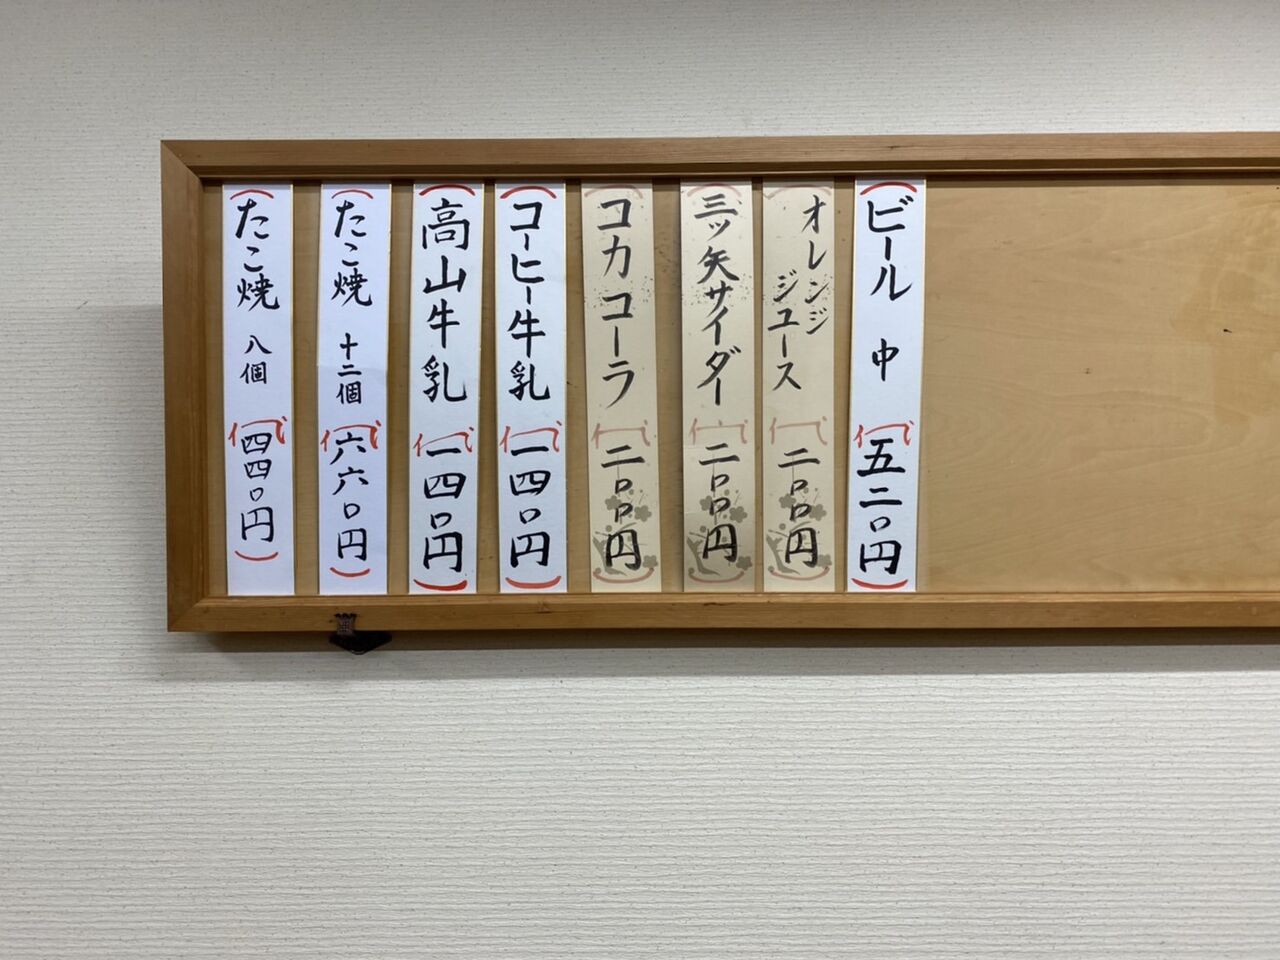 ビール 中 代五二〇円
オレンジ
ジュース 代二〇〇円
三ツ矢サイダー 代二〇〇円
コカコーラ 代二〇〇円
コーヒー牛乳 代一四〇円
高山牛乳 代一四〇円
たこ焼 十二個 代六六〇円
たこ焼 八個 代四四〇円